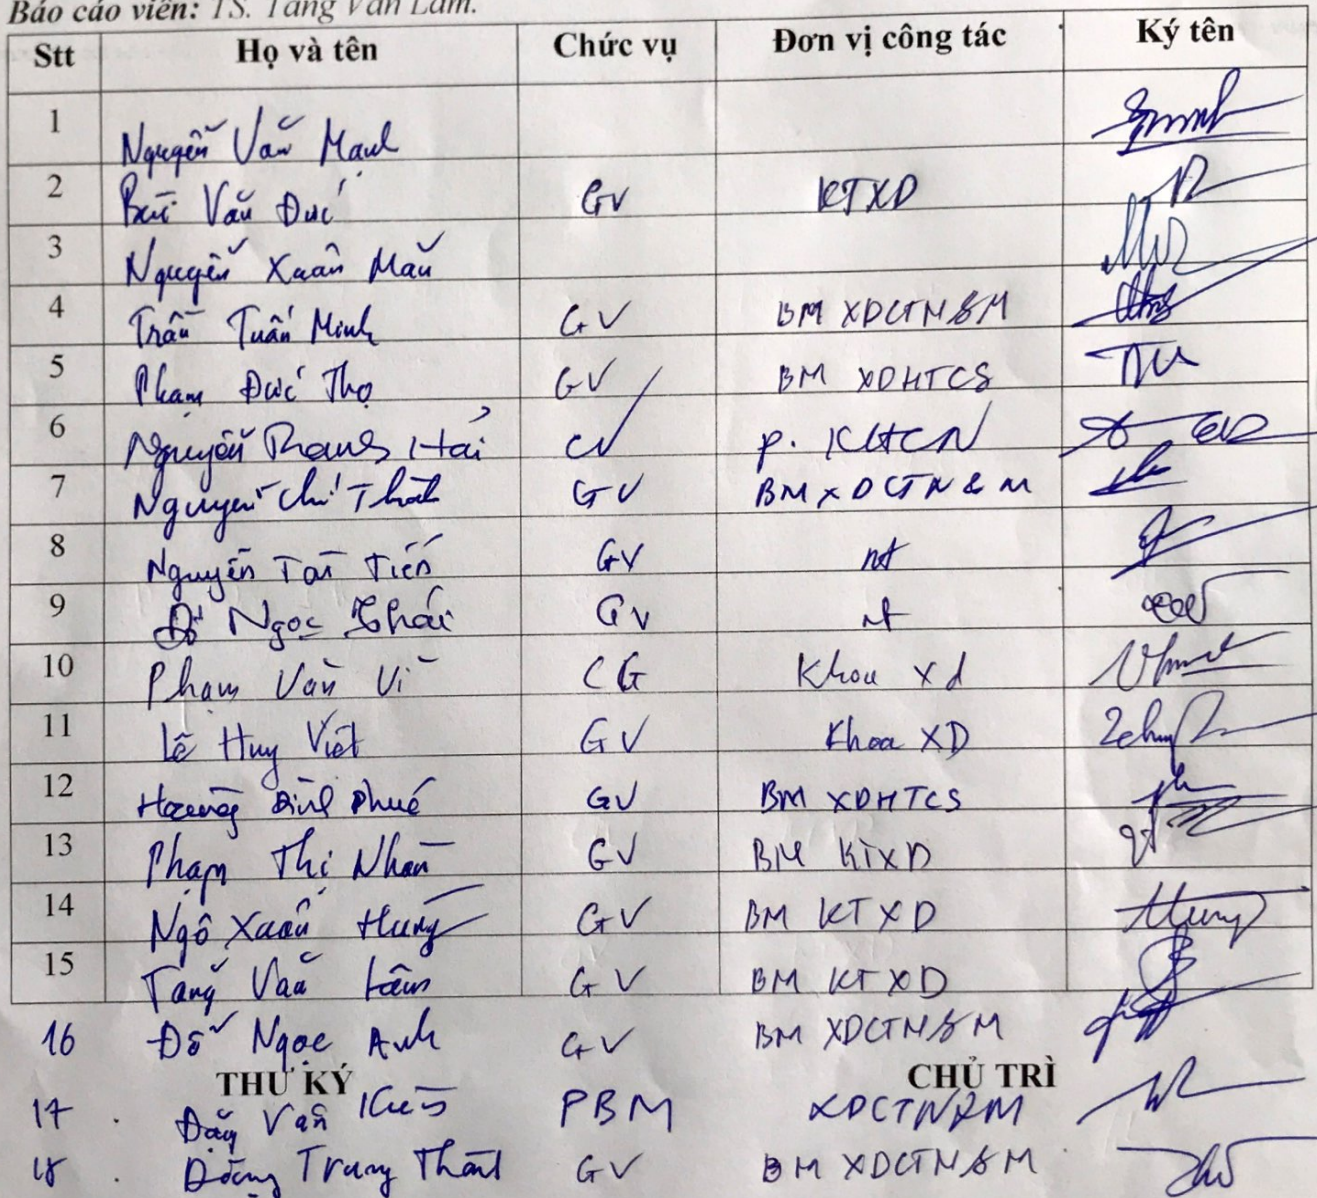 Báo cáo viên: TS. Tăng Văn Lâm.
Stt Họ và tên Chức vụ Đơn vị công tác Ký tên
1 Nguyễn Văn Mạnh
2 Bùi Văn Đức GV KTXD
3 Nguyễn Xuân Mãn
4 Trần Tuấn Minh GV BM XDCTN&M
5 Phạm Đức Thọ GV BM XDHTCS
6 Nguyễn Thanh Hải CV P. KHCN
7 Nguyễn Chí Thành GV BM XDCTN&M
8 Nguyễn Tài Tiến GV nt
9 Đỗ Ngọc Thái GV nt
10 Phạm Văn Vĩ CG Khoa Xd
11 Lê Huy Việt GV Khoa XD
12 Hoàng Đình Phúc GV BM XDHTCS
13 Phạm Thị Nhàn GV BM KTXD
14 Ngô Xuân Hùng GV BM KTXD Hung
15 Tăng Văn Lâm GV BM KTXD
16 Đỗ Ngọc Anh GV BM XDCTN&M
THƯ KÝ CHỦ TRÌ
17 Đặng Văn Kiên PBM XDCTN&M
18 Đặng Trung Thành GV BM XDCTN&M